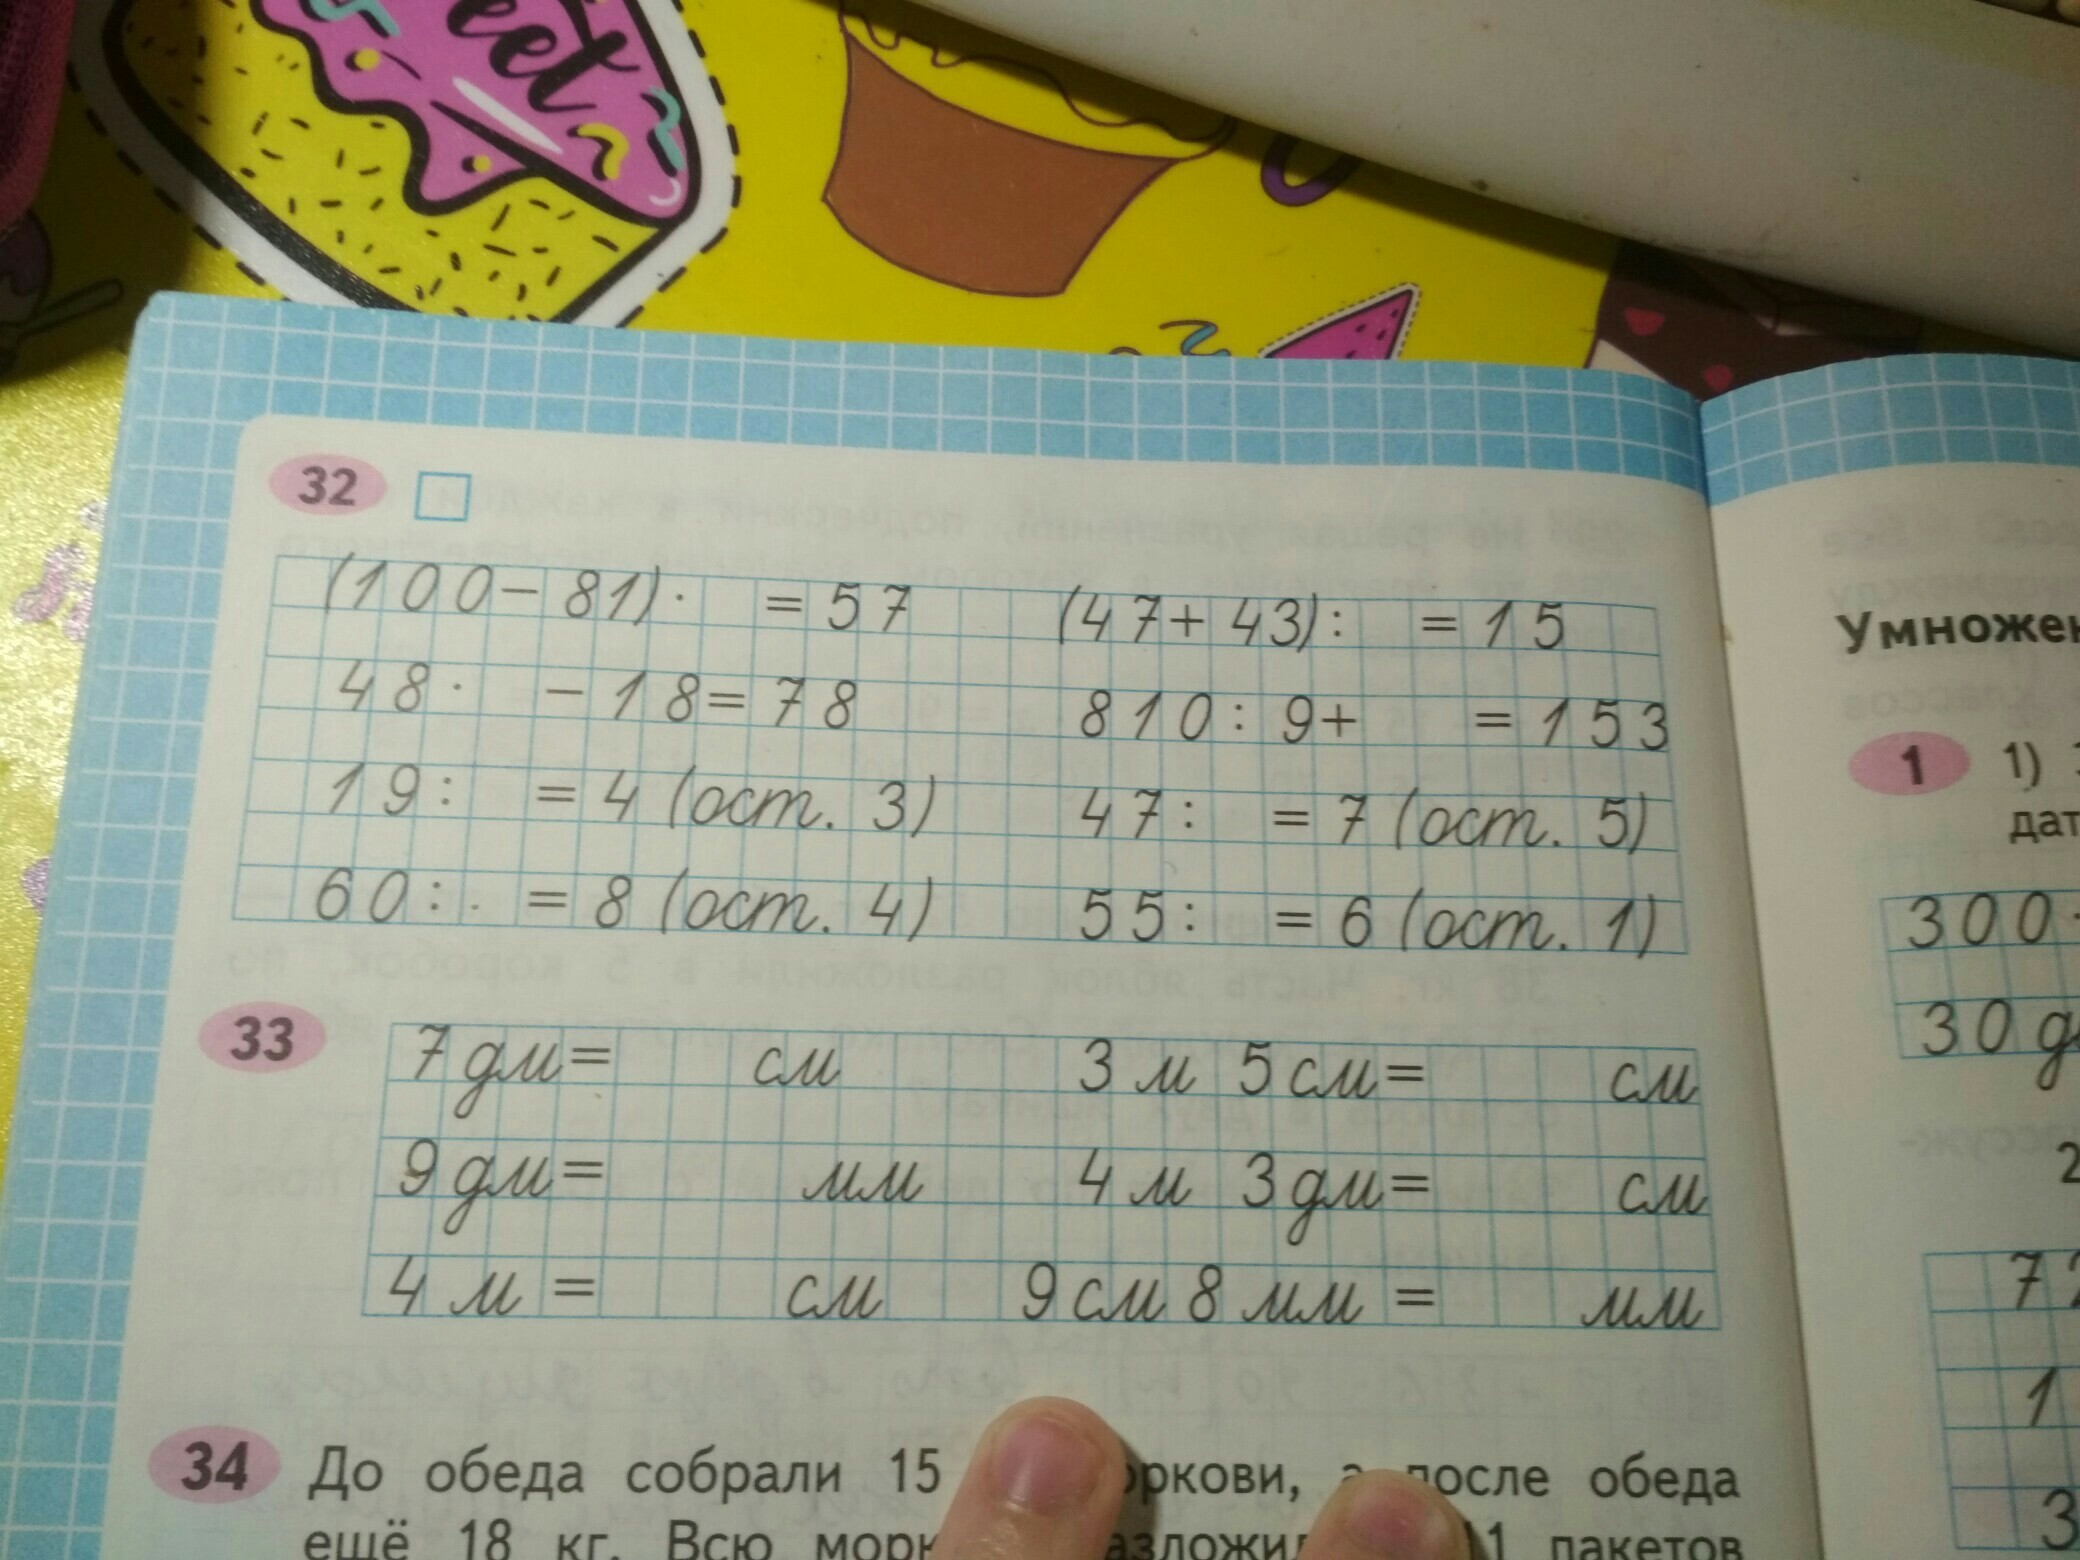 32
(100-81)· =57 (47+43): =15
48· -18=78 810:9+ =153
19: =4 (ост. 3) 47: =7 (ост. 5)
60: =8 (ост. 4) 55: =6 (ост. 1)
33
7 дм= см 3 м 5 см= см
9 дм= мм 4 м 3 дм= см
4 м = см 9 см 8 мм = мм
34 До обеда собрали 15 а после обеда
ещё 18 кг. Всю 11 пакетов
1 1)
300
30